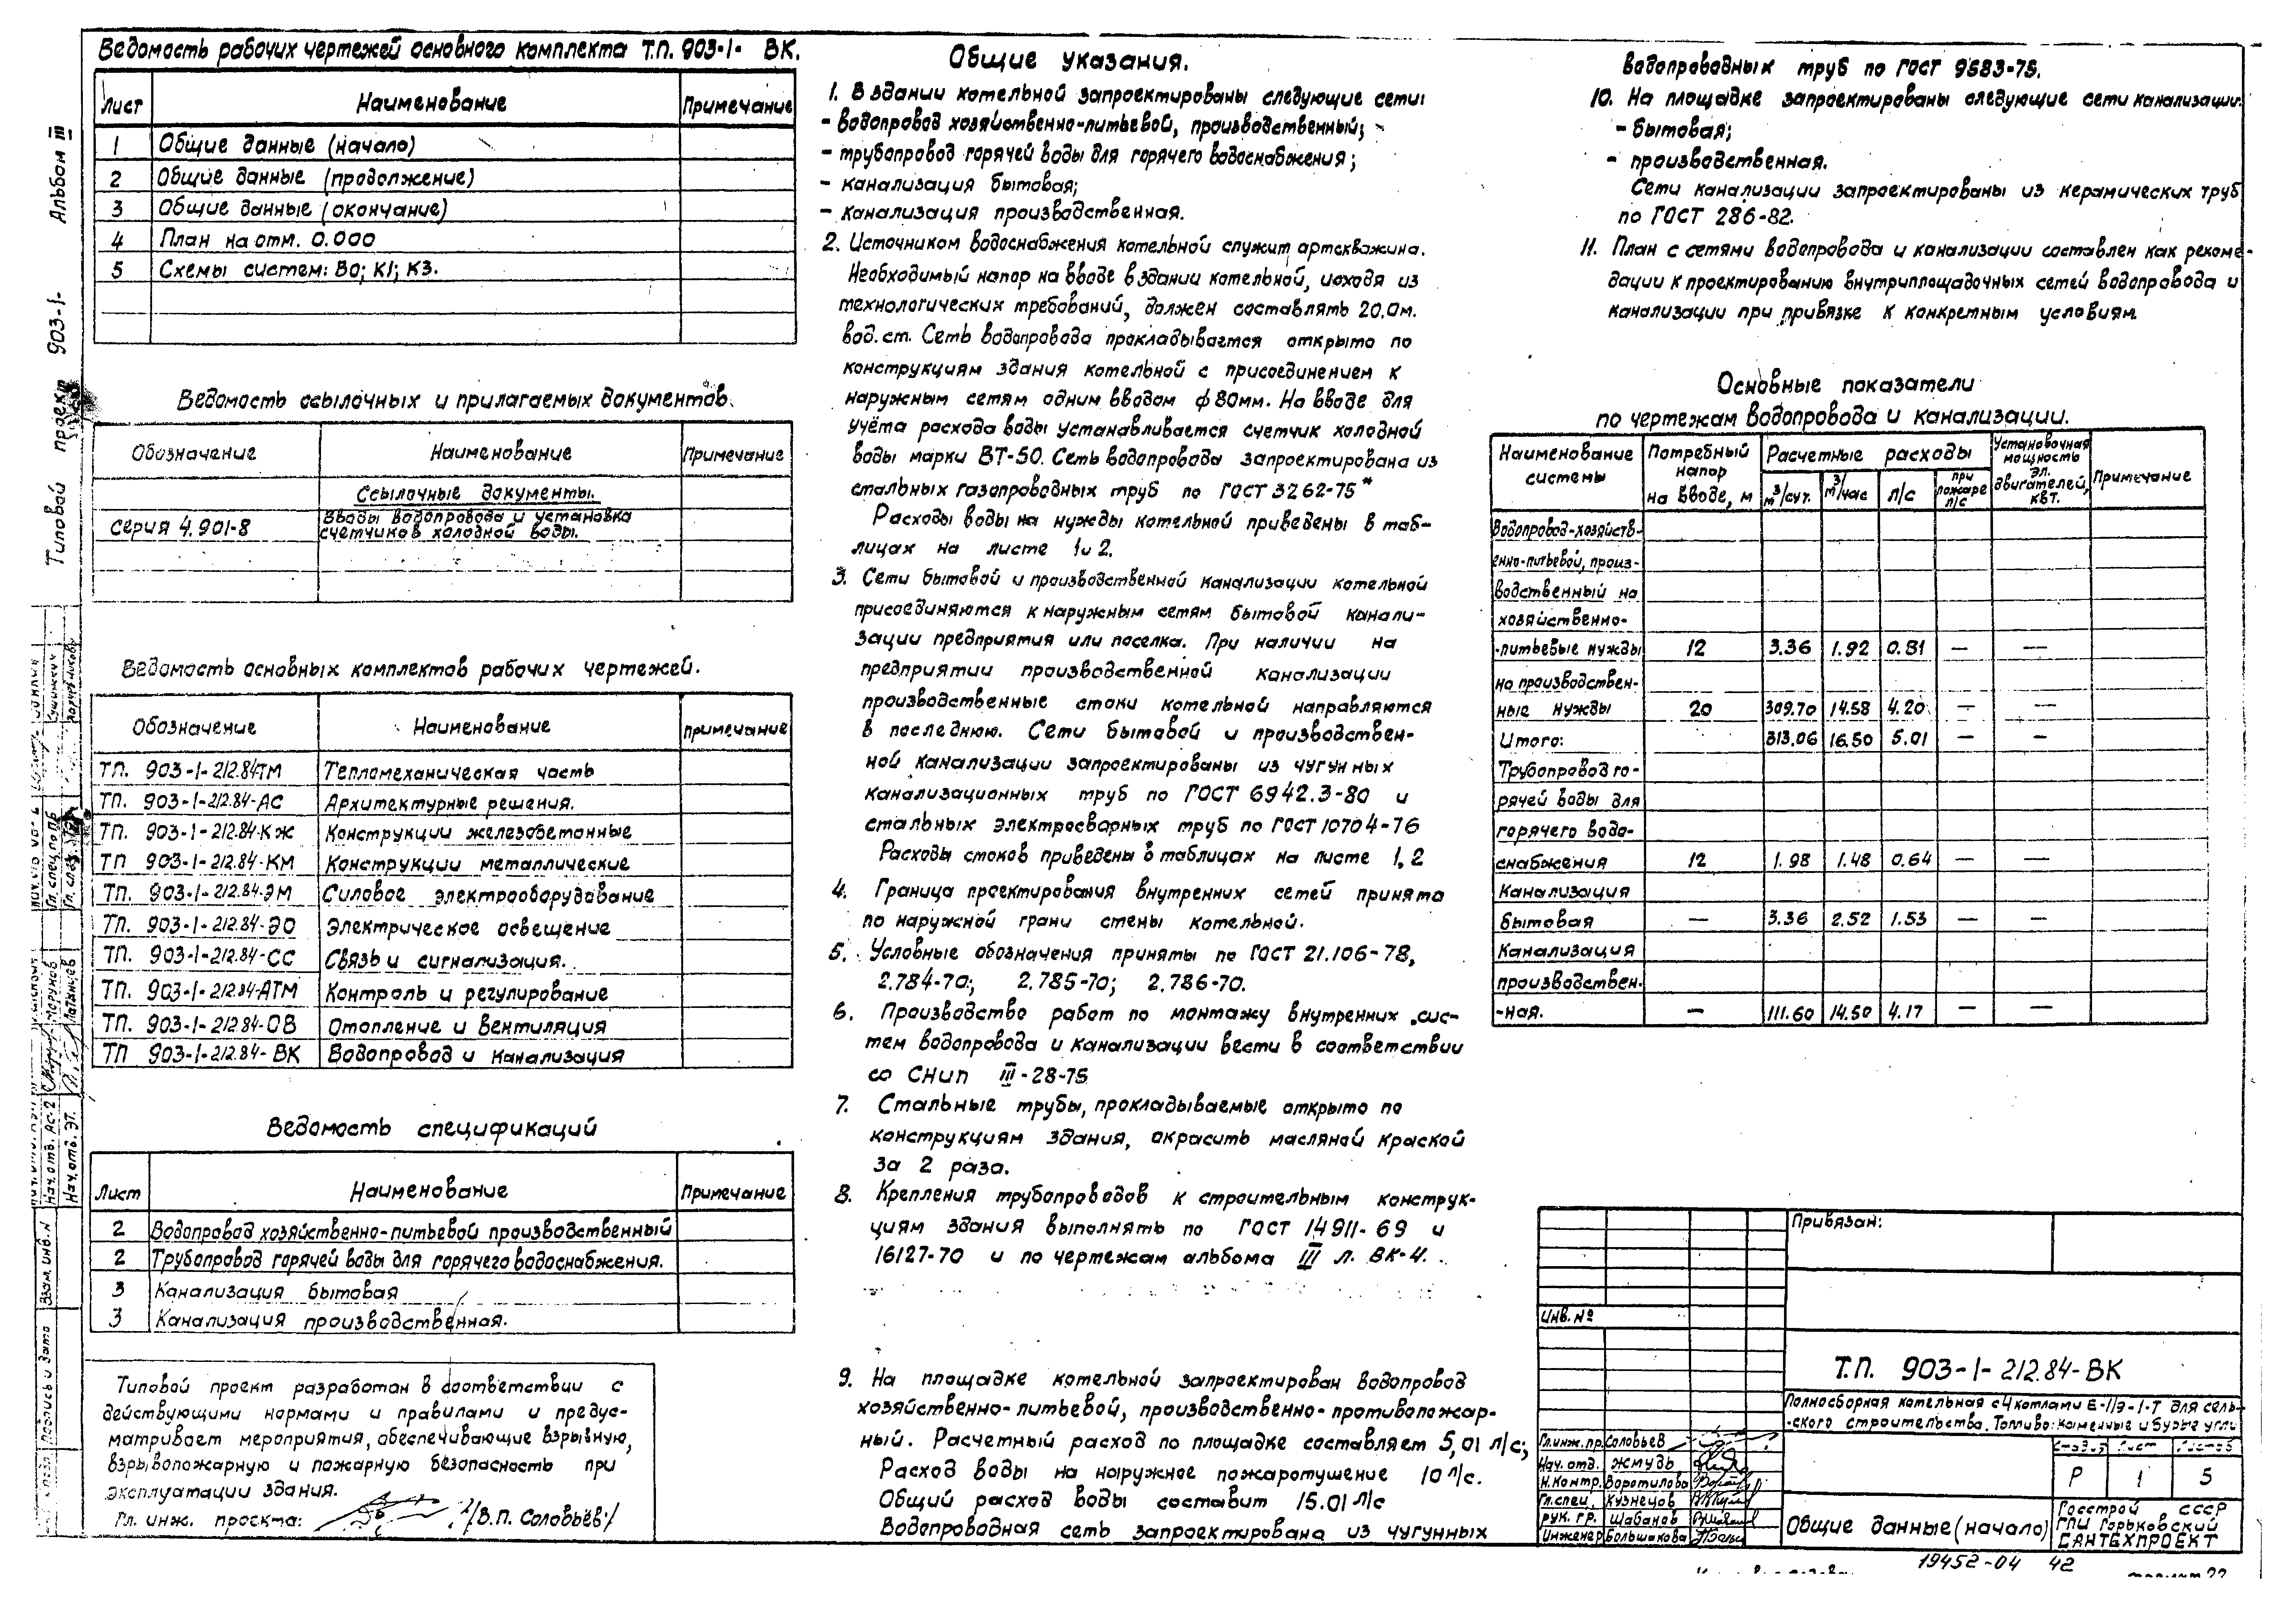 Ведомость рабочих чертежей основного комплекта Т.П. 903-1- ВК.
Лист Наименование Примечание
1 Общие данные (начало)
2 Общие данные (продолжение)
3 Общие данные (окончание)
4 План на отм. 0.000
5 Схемы систем: В0; К1; К3.
Ведомость ссылочных и прилагаемых документов.
Обозначение Наименование Примечание
Ссылочные документы.
Серия 4.901-8 Вводы водопровода и установка
счетчиков холодной воды.
Ведомость основных комплектов рабочих чертежей.
Обозначение Наименование примечание
ТП. 903-1-212.84ТМ Тепломеханическая часть
ТП. 903-1-212.84-АС Архитектурные решения.
ТП. 903-1-212.84-КЖ Конструкции железобетонные
ТП 903-1-212.84-КМ Конструкции металлические
ТП. 903-1-212.84-ЭМ Силовое электрооборудование
ТП. 903-1-212.84-ЭО Электрическое освещение
ТП. 903-1-212.84-СС Связь и сигнализация.
ТП. 903-1-212.84-АТМ Контроль и регулирование
ТП. 903-1-212.84-ОВ Отопление и вентиляция
ТП 903-1-212.84-ВК Водопровод и канализация
Ведомость спецификаций
Лист Наименование Примечание
2 Водопровод хозяйственно-питьевой производственный
2 Трубопровод горячей воды для горячего водоснабжения.
3 Канализация бытовая
3 Канализация производственная.
Типовой проект разработан в соответствии с
действующими нормами и правилами и предус-
матривает мероприятия, обеспечивающие взрывную,
взрывопожарную и пожарную безопасность при
эксплуатации здания.
Гл. инж. проекта: /В.П. Соловьёв/
Общие указания.
1. В здании котельной запроектированы следующие сети:
- водопровод хозяйственно-питьевой, производственный;
- трубопровод горячей воды для горячего водоснабжения;
- канализация бытовая;
- канализация производственная.
2. Источником водоснабжения котельной служит артскважина.
Необходимый напор на вводе в здании котельной, исходя из
технологических требований, должен составлять 20.0м.
вод. ст. Сеть водопровода прокладывается открыто по
конструкциям здания котельной с присоединением к
наружным сетям одним вводом ф80мм. На вводе для
учёта расхода воды устанавливается счетчик холодной
воды марки ВТ-50. Сеть водопровода запроектирована из
стальных газопроводных труб по ГОСТ 3262-75*
Расходы воды на нужды котельной приведены в таб-
лицах на листе 1 и 2.
3. Сети бытовой и производственной канализации котельной
присоединяются к наружным сетям бытовой канали-
зации предприятия или поселка. При наличии на
предприятии производственной канализации
производственные стоки котельной направляются
в последнюю. Сети бытовой и производствен-
ной канализации запроектированы из чугунных
канализационных труб по ГОСТ 6942.3-80 и
стальных электросварных труб по ГОСТ 10704-76
Расходы стоков приведены в таблицах на листе 1, 2
4. Граница проектирования внутренних сетей принята
по наружной грани стены котельной.
5. Условные обозначения приняты по ГОСТ 21.106-78,
2.784-70; 2.785-70; 2.786-70.
6. Производство работ по монтажу внутренних сис-
тем водопровода и канализации вести в соответствии
со СНиП III-28-75
7. Стальные трубы, прокладываемые открыто по
конструкциям здания, окрасить масляной краской
за 2 раза.
8. Крепления трубопроводов к строительным конструк-
циям здания выполнять по ГОСТ 14911-69 и
16127-70 и по чертежам альбома III л. ВК-4.
9. На площадке котельной запроектирован водопровод
хозяйственно-питьевой, производственно-противопожар-
ный. Расчетный расход по площадке составляет 5,01 л/с;
Расход воды на наружное пожаротушение 10 л/с.
Общий расход воды составит 15.01 л/с
Водопроводная сеть запроектирована из чугунных
водопроводных труб по ГОСТ 9583-75.
10. На площадке запроектированы следующие сети канализации:
- бытовая;
- производственная.
Сети канализации запроектированы из керамических труб
по ГОСТ 286-82.
11. План с сетями водопровода и канализации составлен как рекомен-
дации к проектированию внутриплощадочных сетей водопровода и
канализации при привязке к конкретным условиям.
Основные показатели
по чертежам водопровода и канализации.
Наименование системы Потребный напор на вводе, м Расчетные расходы Установочная мощность эл. двигателей, квт. Примечание
м3/сут. м3/час л/с при пожаре л/с
Водопровод-хозяйств-
енно-питьевой, произ-
водственный на
хозяйственно-
-питьевые нужды 12 3.36 1.92 0.81 — —
на производствен-
ные нужды 20 309.70 14.58 4.20 — —
Итого: 313.06 16.50 5.01 — —
Трубопровод го-
рячей воды для
горячего водо-
снабжения 12 1.98 1.48 0.64 — —
Канализация
бытовая — 3.36 2.52 1.53 — —
Канализация
производствен-
-ная. — 111.60 14.50 4.17 — —
Привязан:
Инв. №
Т.П. 903-1-212.84-ВК
Полносборная котельная с 4 котлами Е-1/9-1-Т для сель-
-ского строительства. Топливо: каменные и бурые угли
Стадия Лист Листов
Р 1 5
Гл.инж.пр. Соловьев
Нач. отд. Жмудь
Н.контр. Воротилова
Гл.спец. Кузнецов
рук. гр. Шабанов
Инженер Большакова
Общие данные (начало)
Госстрой СССР
ГПИ Горьковский
САНТЕХПРОЕКТ
19452-04 42
Типовой проект 903-1- Альбом III
Гл. спец. по ПБ
Нач. отд. АС-2
Нач. отд. ЭТ.
Взам. инв. N
Подпись и дата